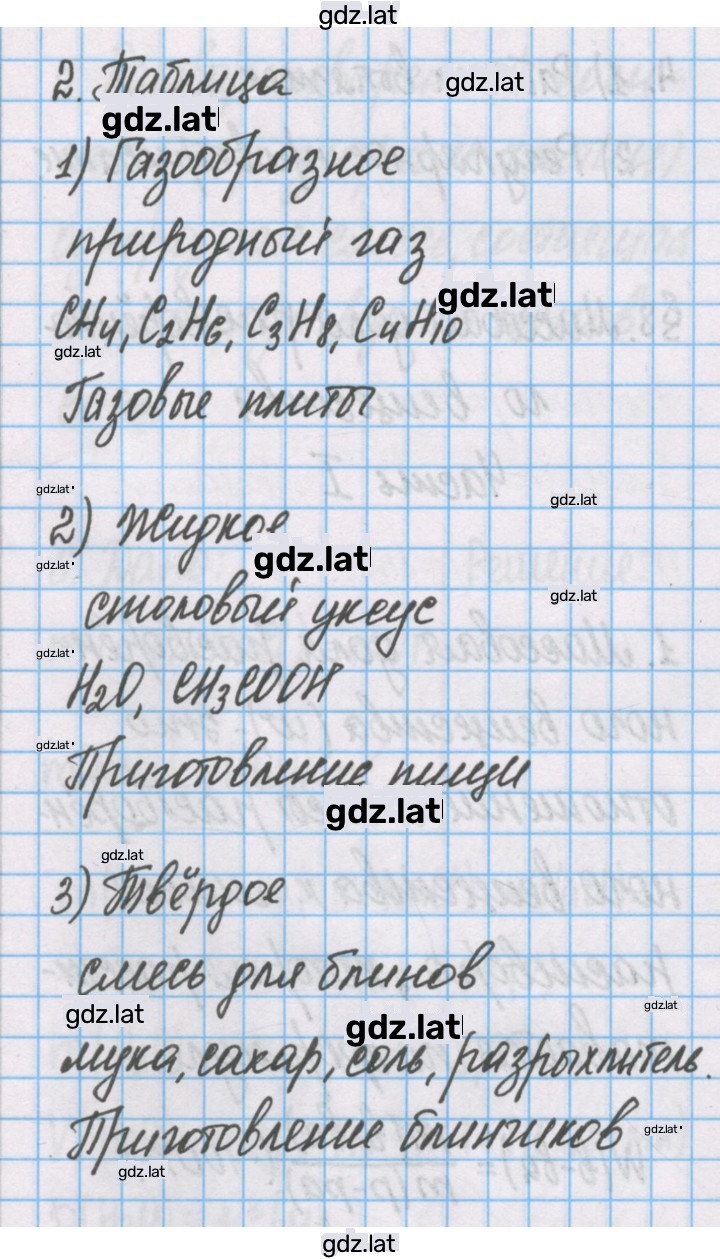 gdz.lat
2. Таблица
gdz.lat
gdz.lat
1) Газообразное
природный газ
gdz.lat
CH4, C2H6, C3H8, C4H10
gdz.lat
Газовые плиты
gdz.lat
gdz.lat
2) Жидкое
gdz.lat
gdz.lat
столовый уксус
gdz.lat
gdz.lat
H2O, CH3COOH
gdz.lat
Приготовление пищи
gdz.lat
gdz.lat
3) Твёрдое
смесь для блинов
gdz.lat
gdz.lat
gdz.lat
мука, сахар, соль, разрыхлитель.
Приготовление блинчиков
gdz.lat
gdz.lat
gdz.lat